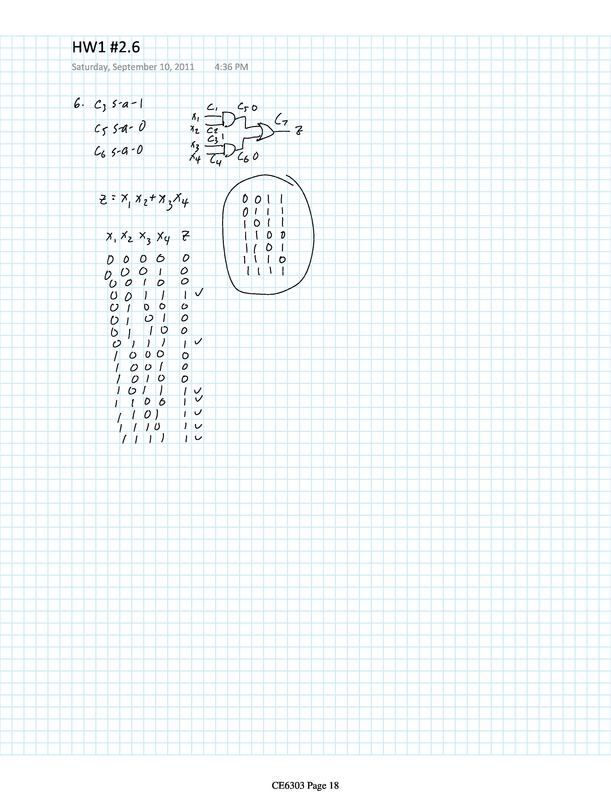 HW1 #2.6
Saturday, September 10, 2011 4:36 PM
6. C3 s-a-1
C5 s-a-0
C6 s-a-0
x1 C1 C5 0
x2 C2 C7 z
x3 C3 1
x4 C4 C6 0
z = x1 x2 + x3 x4
x1 x2 x3 x4 z
0 0 0 0 0
0 0 0 1 0
0 0 1 0 0
0 0 1 1 1 ✓
0 1 0 0 0
0 1 0 1 0
0 1 1 0 0
0 1 1 1 1 ✓
1 0 0 0 0
1 0 0 1 0
1 0 1 0 0
1 0 1 1 1 ✓
1 1 0 0 1 ✓
1 1 0 1 1 ✓
1 1 1 0 1 ✓
1 1 1 1 1 ✓
0 0 1 1
0 1 1 1
1 0 1 1
1 1 0 0
1 1 0 1
1 1 1 0
1 1 1 1
CE6303 Page 18